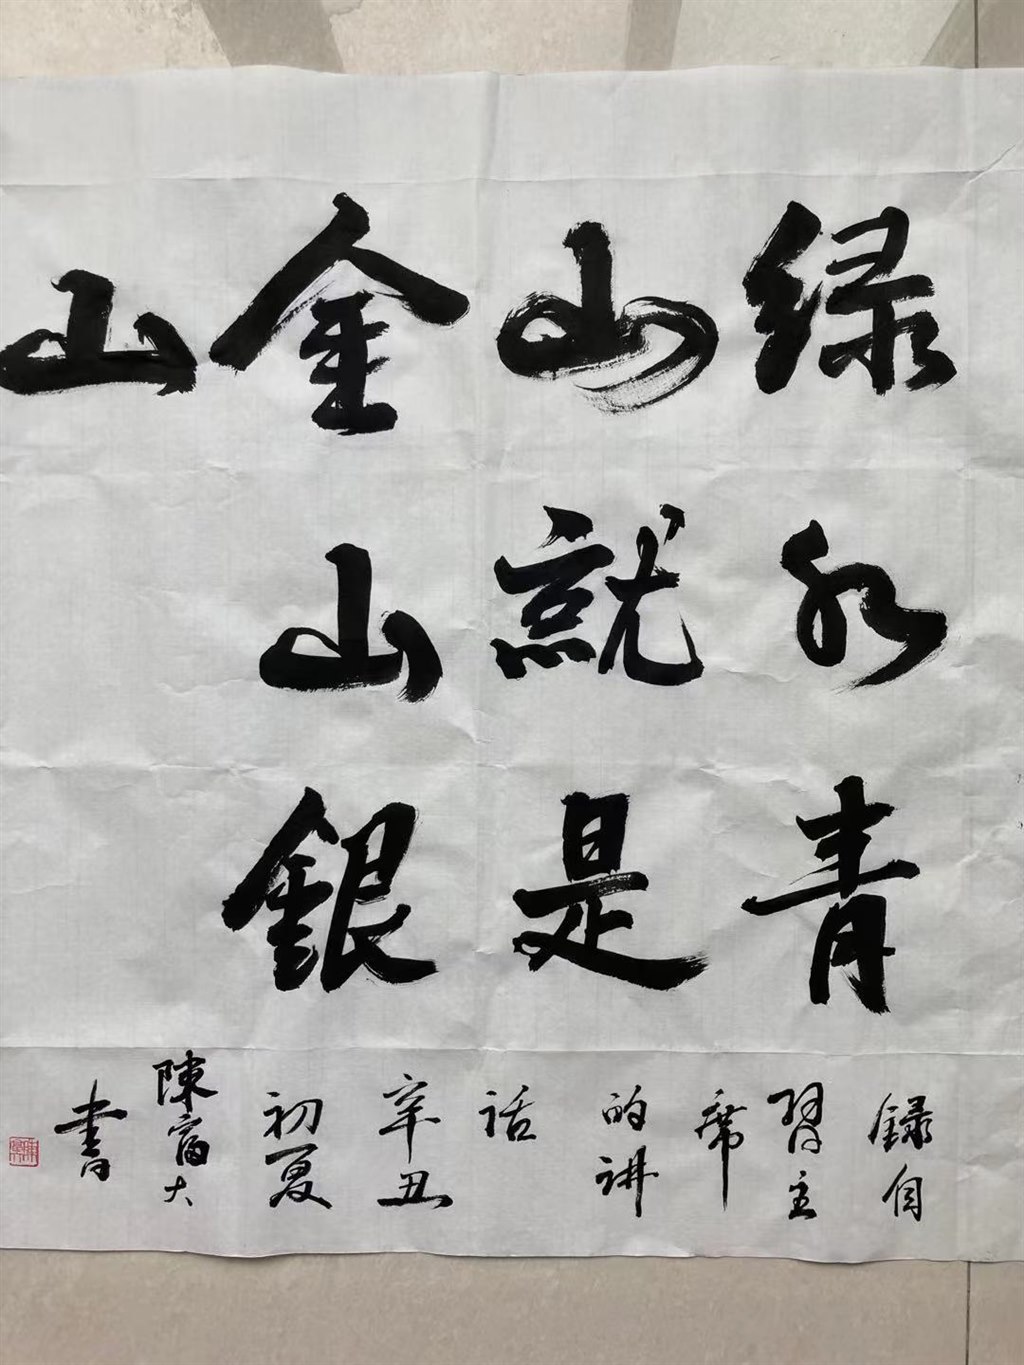 绿水青
山就是
金山银
山
録自
習主
席
的讲
话
辛丑
初夏
陳富大
书